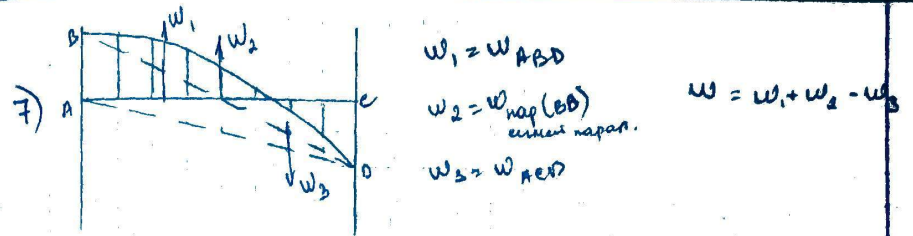 7)
B
A
C
D
W₁
W₂
W₃
W₁ = W ABD
W₂ = W пар (BD)
парап.
W₃ = W ACD
W = W₁ + W₂ - W₃